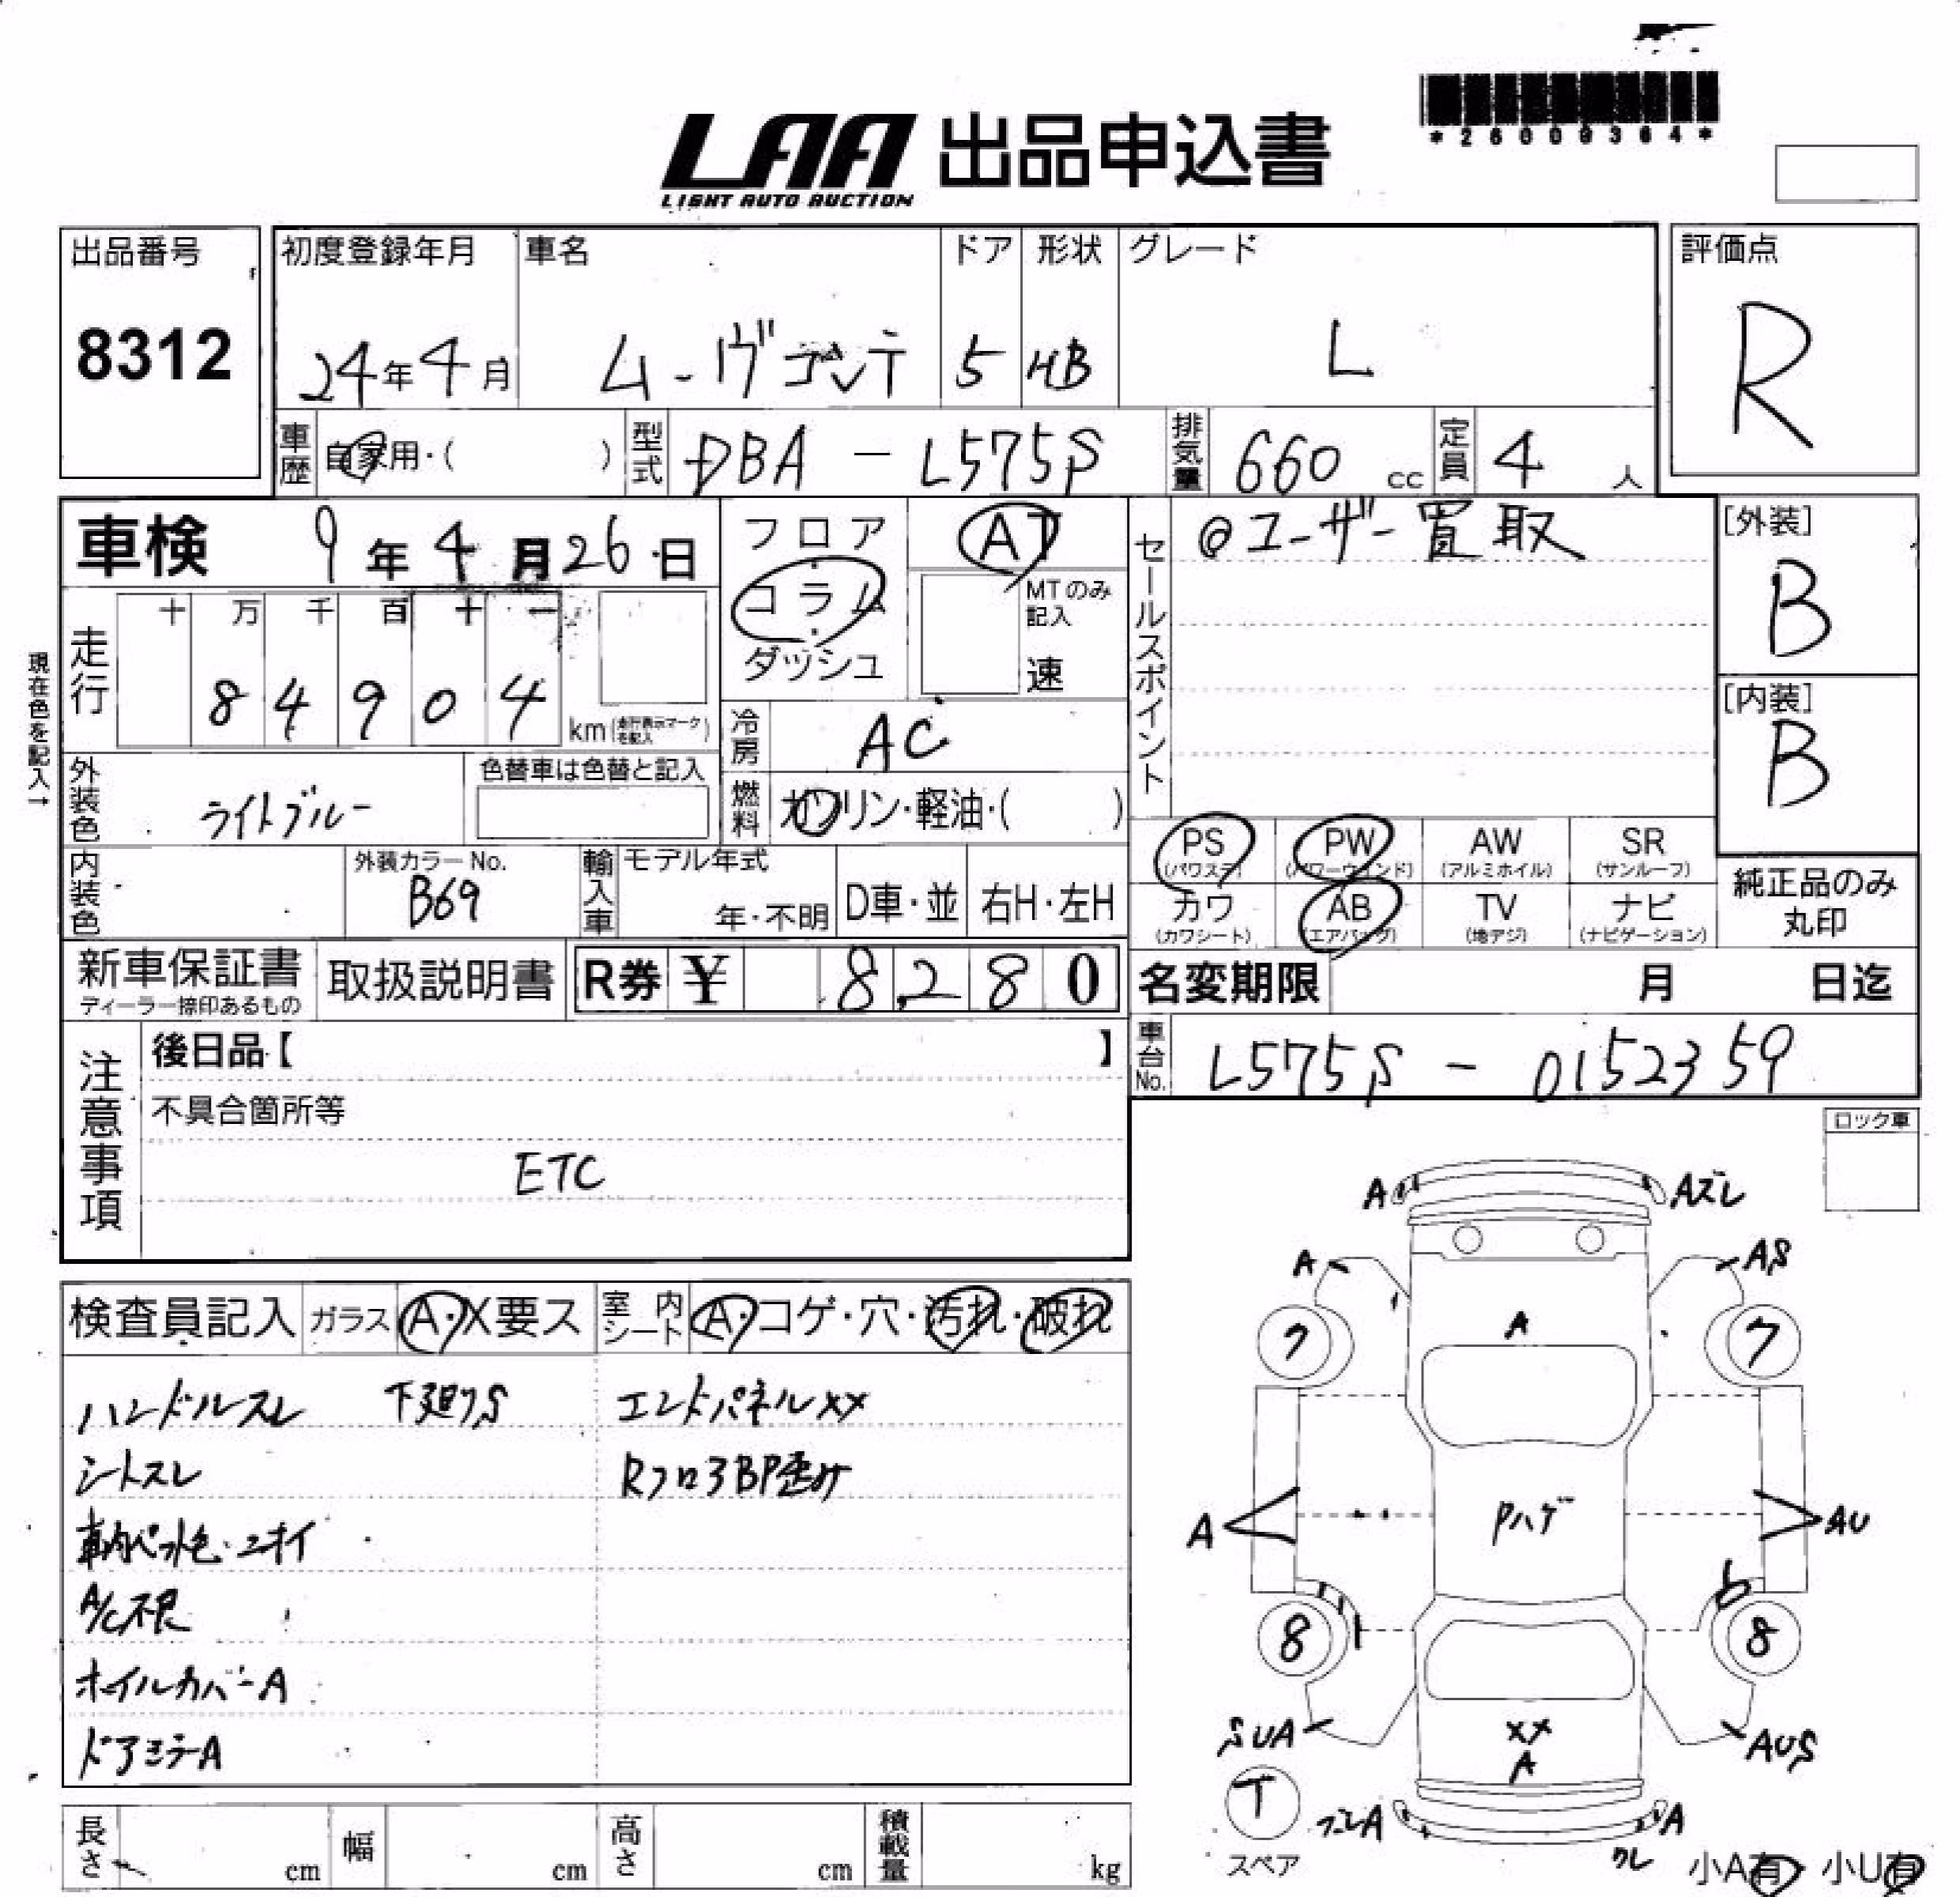 LAA 出品申込書
LIGHT AUTO AUCTION
*26009364*
出品番号
8312
初度登録年月
24年4月
車名
ムーヴコンテ
ドア
5
形状
HB
グレード
L
評価点
R
車歴 自家用・( )
型式 DBA - L575S
排気量 660 cc
定員 4 人
車検 9年4月26日
フロア・コラム・ダッシュ
AT
MTのみ記入
速
セールスポイント
@ユーザー買取
[外装]
B
[内装]
B
現在色を記入→
走行
十 万 千 百 十 一
8 4 9 0 4
km(走行表示マークを記入)
冷房 AC
外装色 ライトブルー
色替車は色替と記入
燃料 ガソリン・軽油・( )
内装色
外装カラーNo.
B69
輸入車 モデル年式
年・不明
D車・並
右H・左H
PS (パワステ)
PW (パワーウィンド)
AW (アルミホイル)
SR (サンルーフ)
カワ (カワシート)
AB (エアバッグ)
TV (地デジ)
ナビ (ナビゲーション)
純正品のみ丸印
新車保証書
ディーラー捺印あるもの
取扱説明書
R券 ¥ 8,280
名変期限 月 日迄
車台No. L575S - 0152359
注意事項
後日品【 】
不具合箇所等
ETC
ロック車
検査員記入
ガラス A・X要ス
室内シート A・コゲ・穴・汚れ・破れ
ハンドルスレ 下廻りS エンドパネルXX
シートスレ RフロアBP歪み
A/C不良
ホイルカバーA
ドアミラーA
A Aズレ
A AS
A
7 7
A Pハゲ AU
8 8
SUA XX AUS
A
T
スペア
ズレA A
ワレ
小A有 小U有
長さ cm
幅 cm
高さ cm
積載量 kg